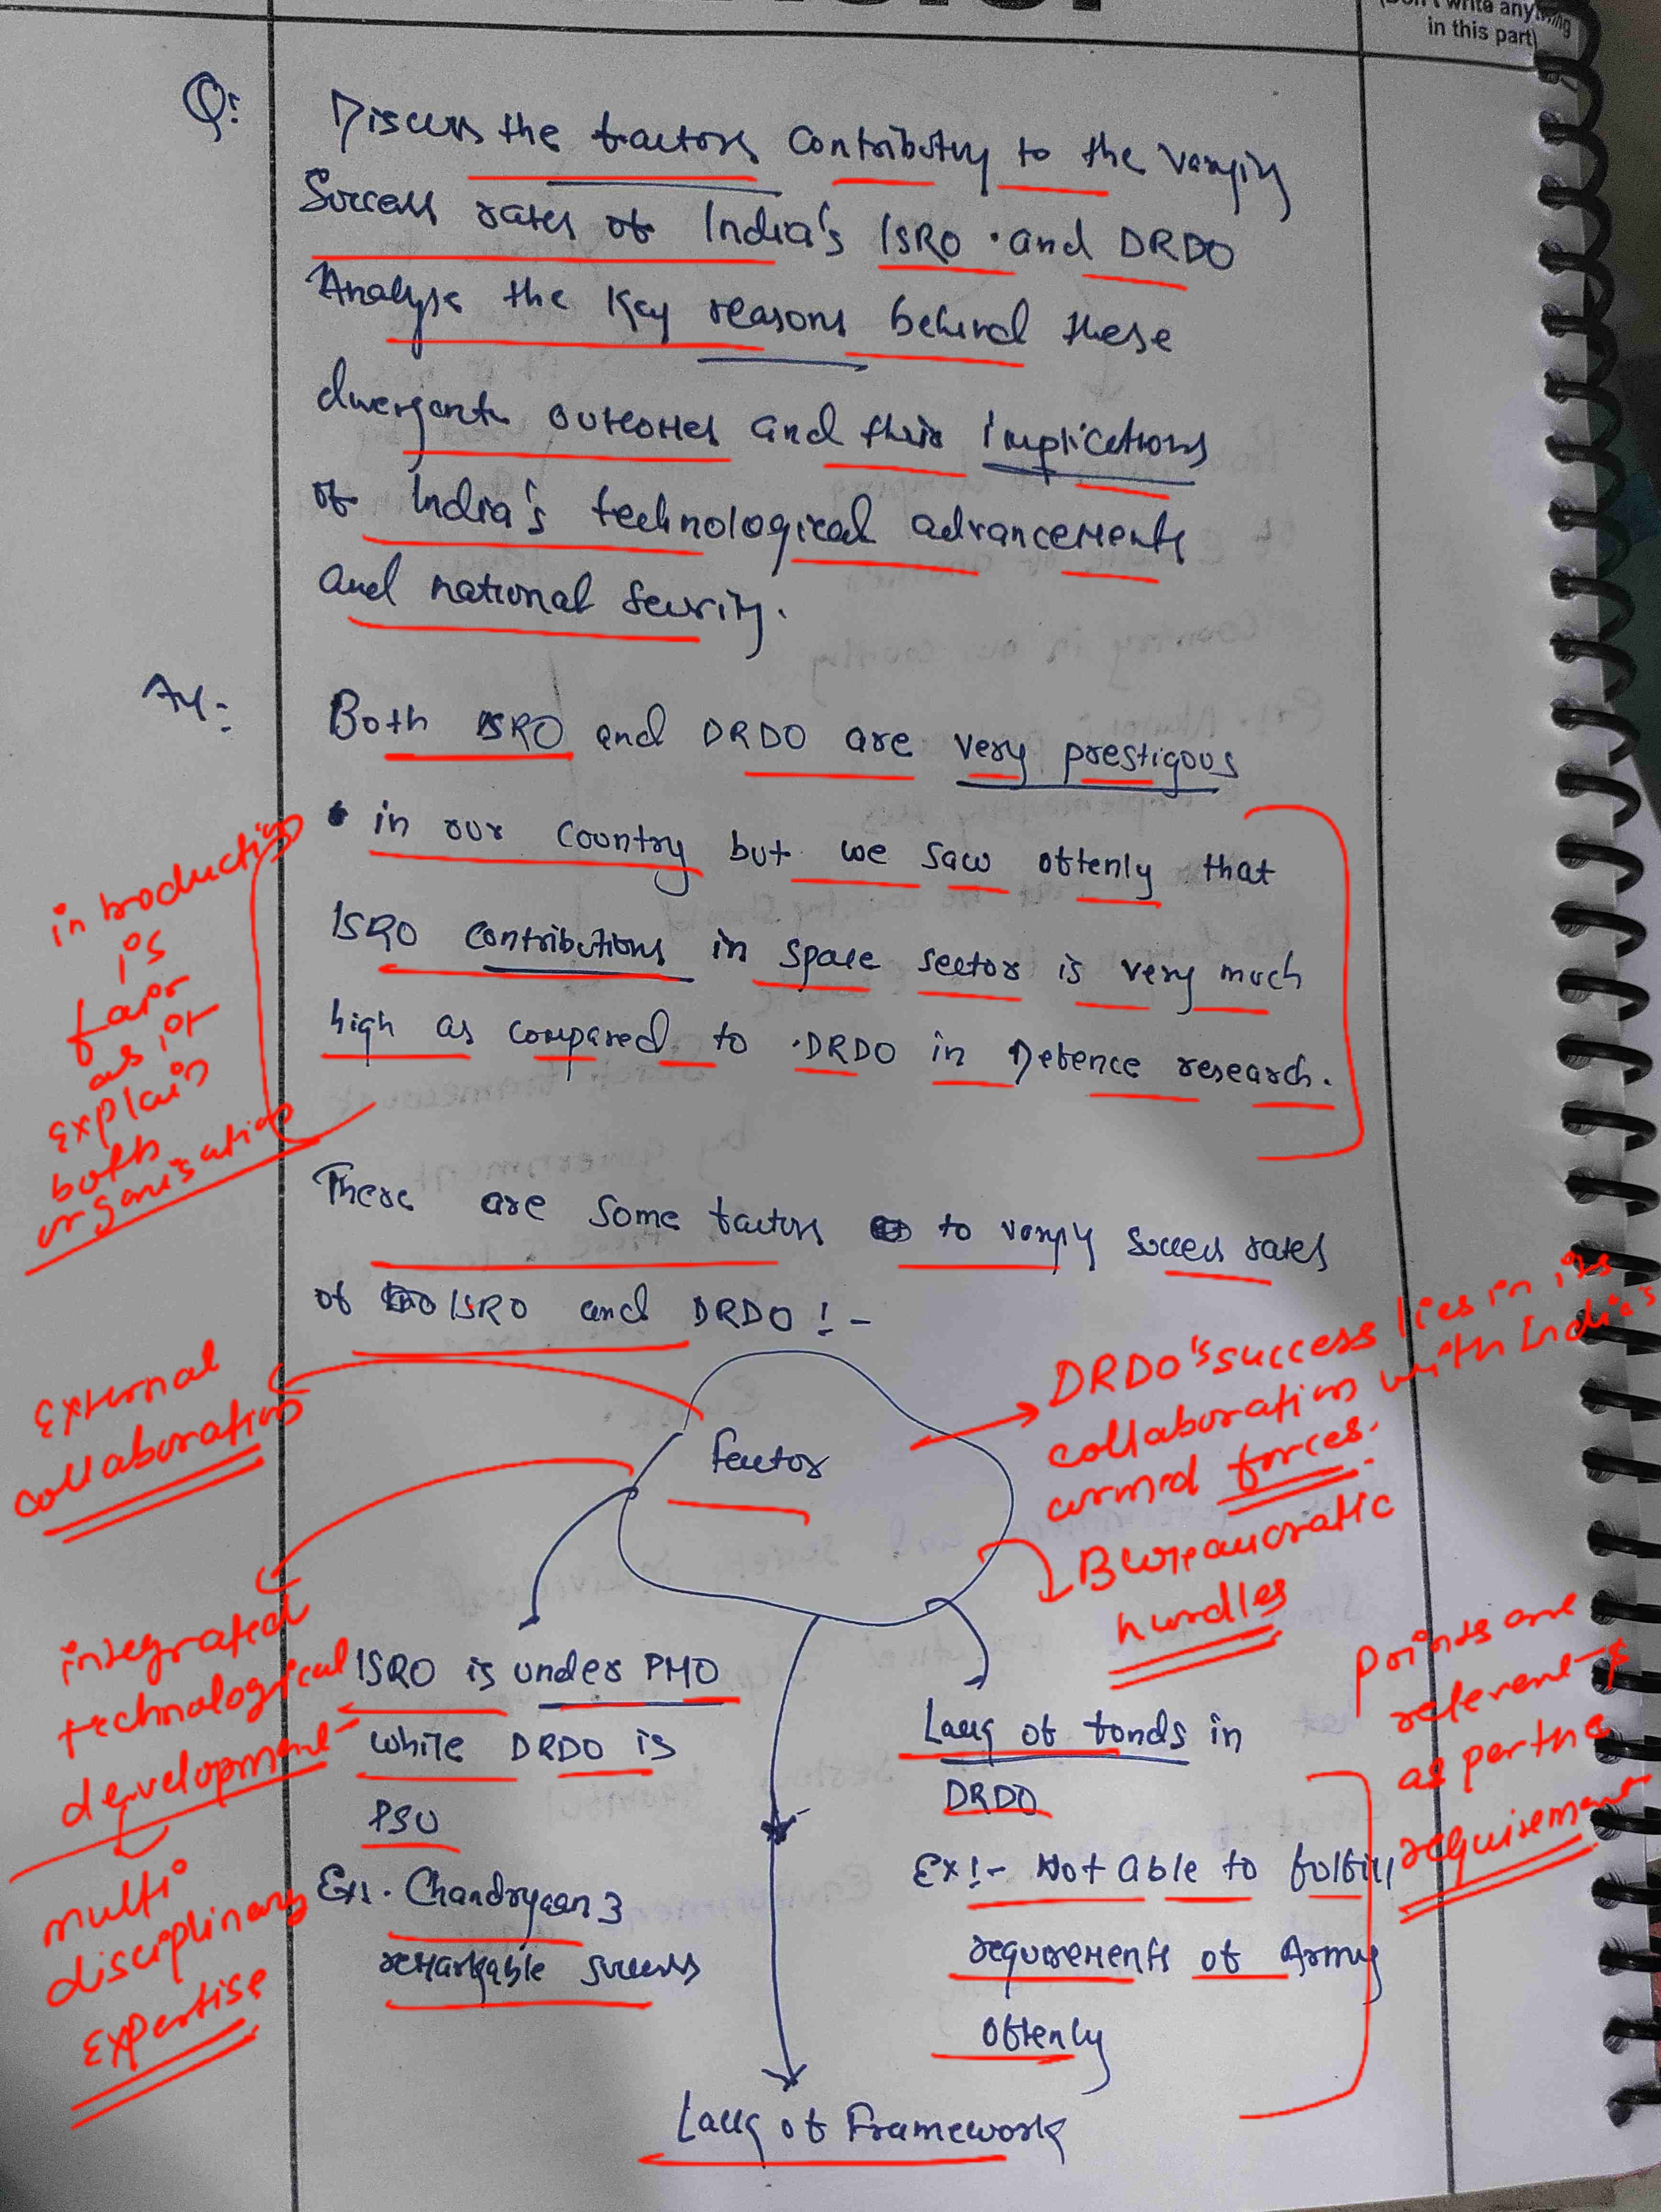 write anything
in this part)
Q:
Discuss the factors contributing to the varying
Success rates of India's ISRO and DRDO
Analyse the key reasons behind these
divergent outcomes and their implications
of India's technological advancements
and national security.
Both ISRO and DRDO are very prestigous
in our country but we saw oftenly that
ISRO contributions in space sector is very much
high as compared to DRDO in Defence research.
introduction
is
fair
as it
explain
both
organisation
There are some factors to varyiy success rates
of ISRO and DRDO !-
factor
external
collaboration
DRDO's success lies in its
collaboration with India's
armed forces.
Bureaucratic
hurdles
integrated
technological
development
multi
disciplinary
expertise
ISRO is under PMO
while DRDO is
PSU
Ex1. Chandryaan 3
remarkable success
Lack of fonds in
DRDO
Ex!- Not able to fulfill
requirements of Army
oftenly
points are
referent
as per the
requirement
Lack of Framework